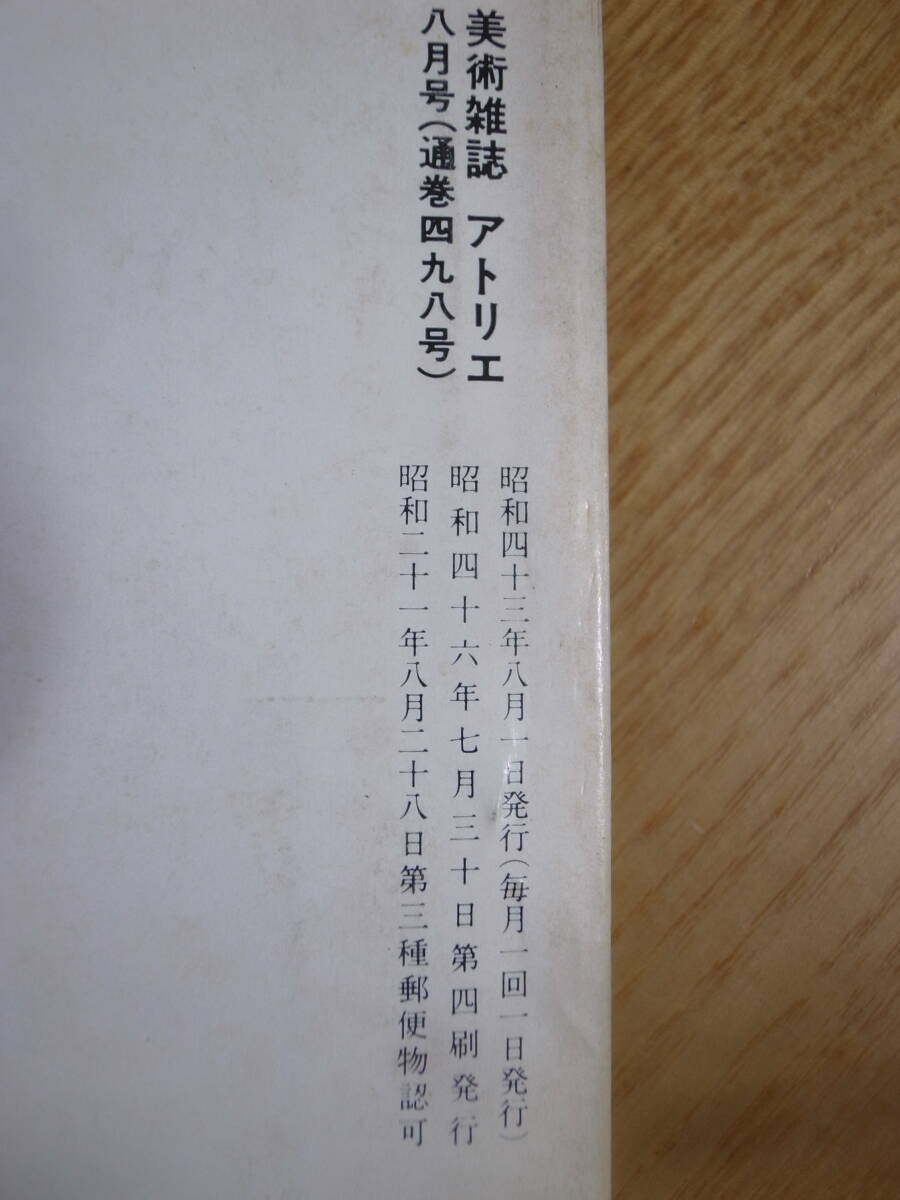 美術雑誌 アトリエ
八月号(通巻四九八号)
昭和四十三年八月一日発行(毎月一回一日発行)
昭和四十六年七月三十日第四刷発行
昭和二十一年八月二十八日第三種郵便物認可